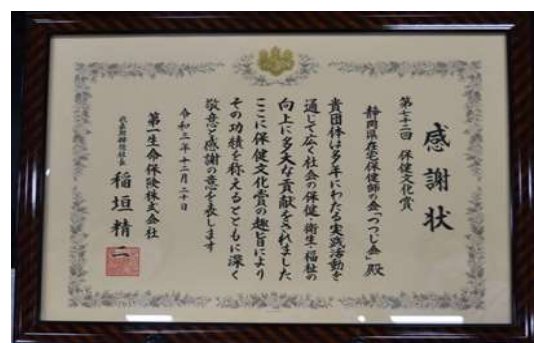 感謝状
第七十二回 保健文化賞
静岡県在宅保健師の会「つつじ会」殿
貴団体は多年にわたる実践活動を
通じて広く社会の保健・衛生・福祉の
向上に多大な貢献をされました
ここに保健文化賞の趣旨により
その功績を称えるとともに深く
敬意と感謝の意を表します
令和三年十二月二十日
第一生命保険株式会社
代表取締役社長 稲垣精二